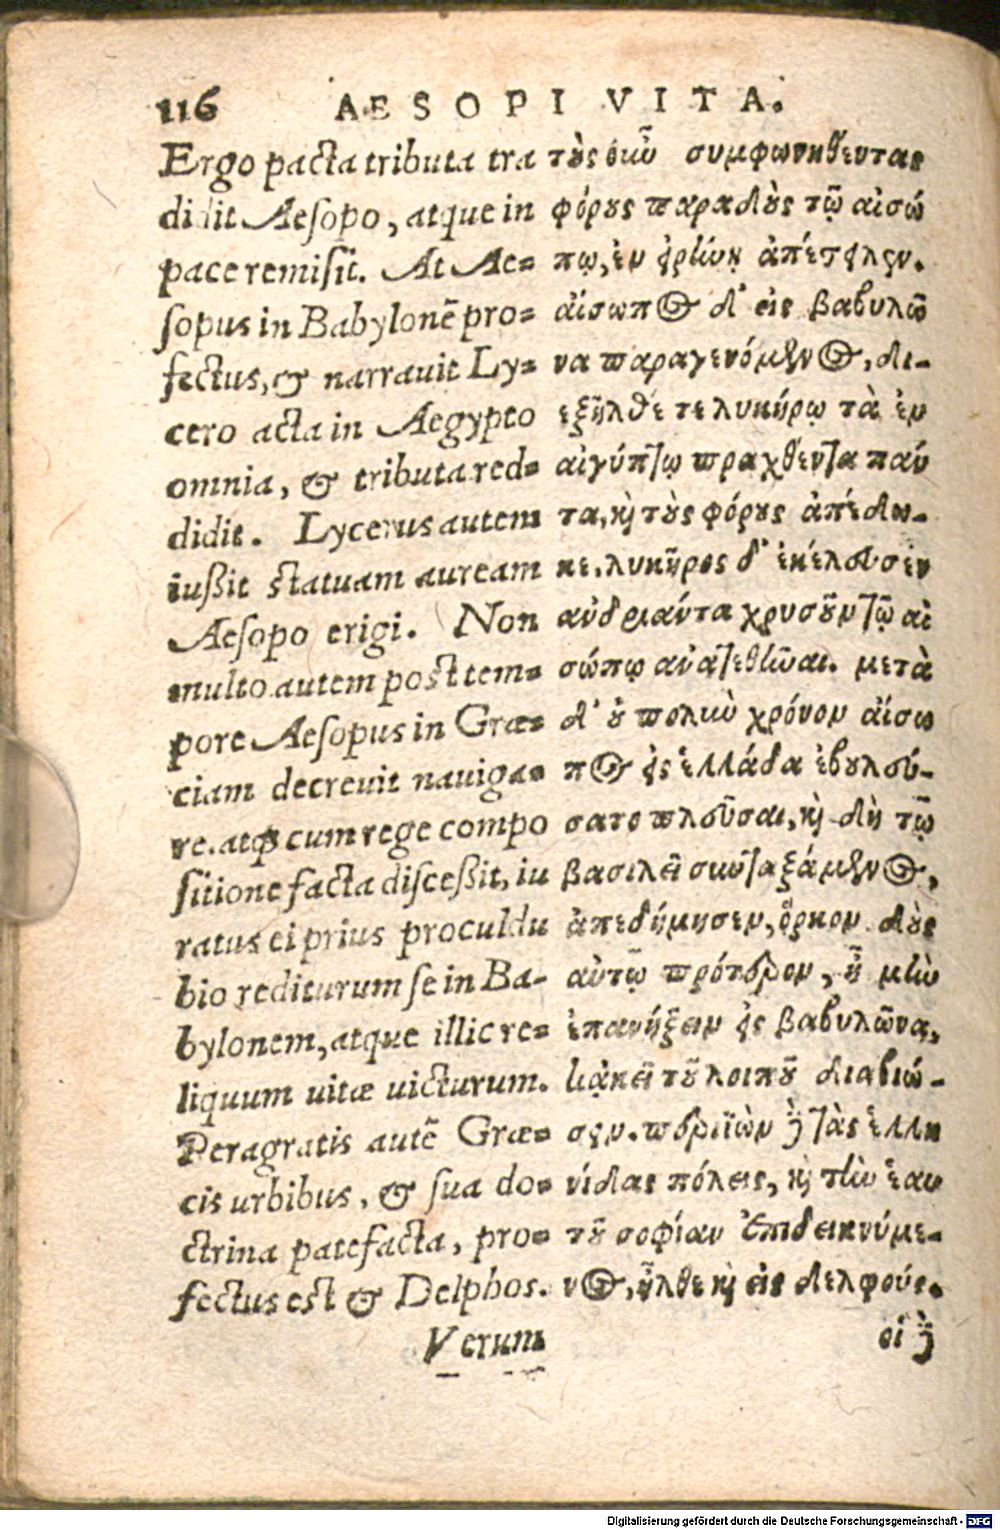 116 AESOPI VITA.
Ergo pacta tributa tra
didit Aesopo, atque in
pace remisit. At Ae-
sopus in Babylonẽ pro-
fectus, & narrauit Ly-
cero acta in Aegypto
omnia, & tributa red-
didit. Lycerus autem
iußit statuam auream
Aesopo erigi. Non
multo autem post tem-
pore Aesopus in Græ-
ciam decreuit nauiga-
re. atq; cum rege compo
sitione facta disceßit, iu
ratus ei prius proculdu
bio rediturum se in Ba-
bylonem, atque illic re-
liquum uitæ uicturum.
Peragratis autẽ Græ-
cis urbibus, & sua do-
ctrina patefacta, pro-
fectus est & Delphos.
Verum
τοὺς οὖν συμφωνηθέντας
φόρους παραδοὺς τῷ αἰσώ
πῳ, ἐν εἰρήνῃ ἀπέστειλεν.
αἴσωπος δ' εἰς βαβυλῶ
να παραγενόμενος, δι-
εξῆλθέ τε λυκήρῳ τὰ ἐν
αἰγύπτῳ πραχθέντα πάν
τα, καὶ τοὺς φόρους ἀπέδω-
κε. λυκῆρος δ' ἐκέλευσεν
ἀνδριάντα χρυσοῦν τῷ αἰ
σώπῳ ἀνατεθῆναι. μετὰ
δ' οὐ πολὺν χρόνον αἴσω
πος εἰς ἑλλάδα ἐβουλεύ-
σατο πλεῦσαι, καὶ δὴ τῷ
βασιλεῖ συνταξάμενος,
ἀπεδήμησεν, ὅρκον δοὺς
αὐτῷ πρότερον, ἦ μὴν
ἐπανήξειν εἰς βαβυλῶνα,
κἀκεῖ τοῦ λοιποῦ διαβιώ-
σειν. περιϊὼν δὲ τὰς ἑλλη
νίδας πόλεις, καὶ τὴν ἑαυ
τοῦ σοφίαν ἐπιδεικνύμε-
νος, ἦλθε καὶ εἰς δελφούς.
οἱ δὲ
Digitalisierung gefördert durch die Deutsche Forschungsgemeinschaft - DFG